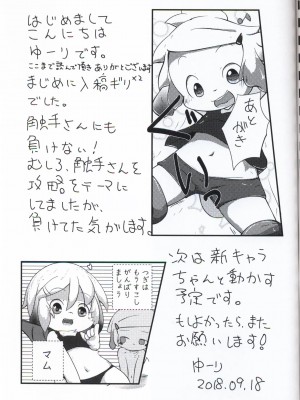 はじめまして
こんにちは
ゆーりです。
ここまで読んで頂きありがとうございます
まじめに入稿ギリ××
でした。
触手さんにも
負けない!
むしろ、触手さんを
攻略をテーマに
してましたが、
負けてた気がします。
あとがき
つぎは
もうすこし
がんばり
ましょう
マム
次は新キャラ
ちゃんと動かす
予定です。
もしよかったら、また
お願いします!
ゆーり
2018.09.18